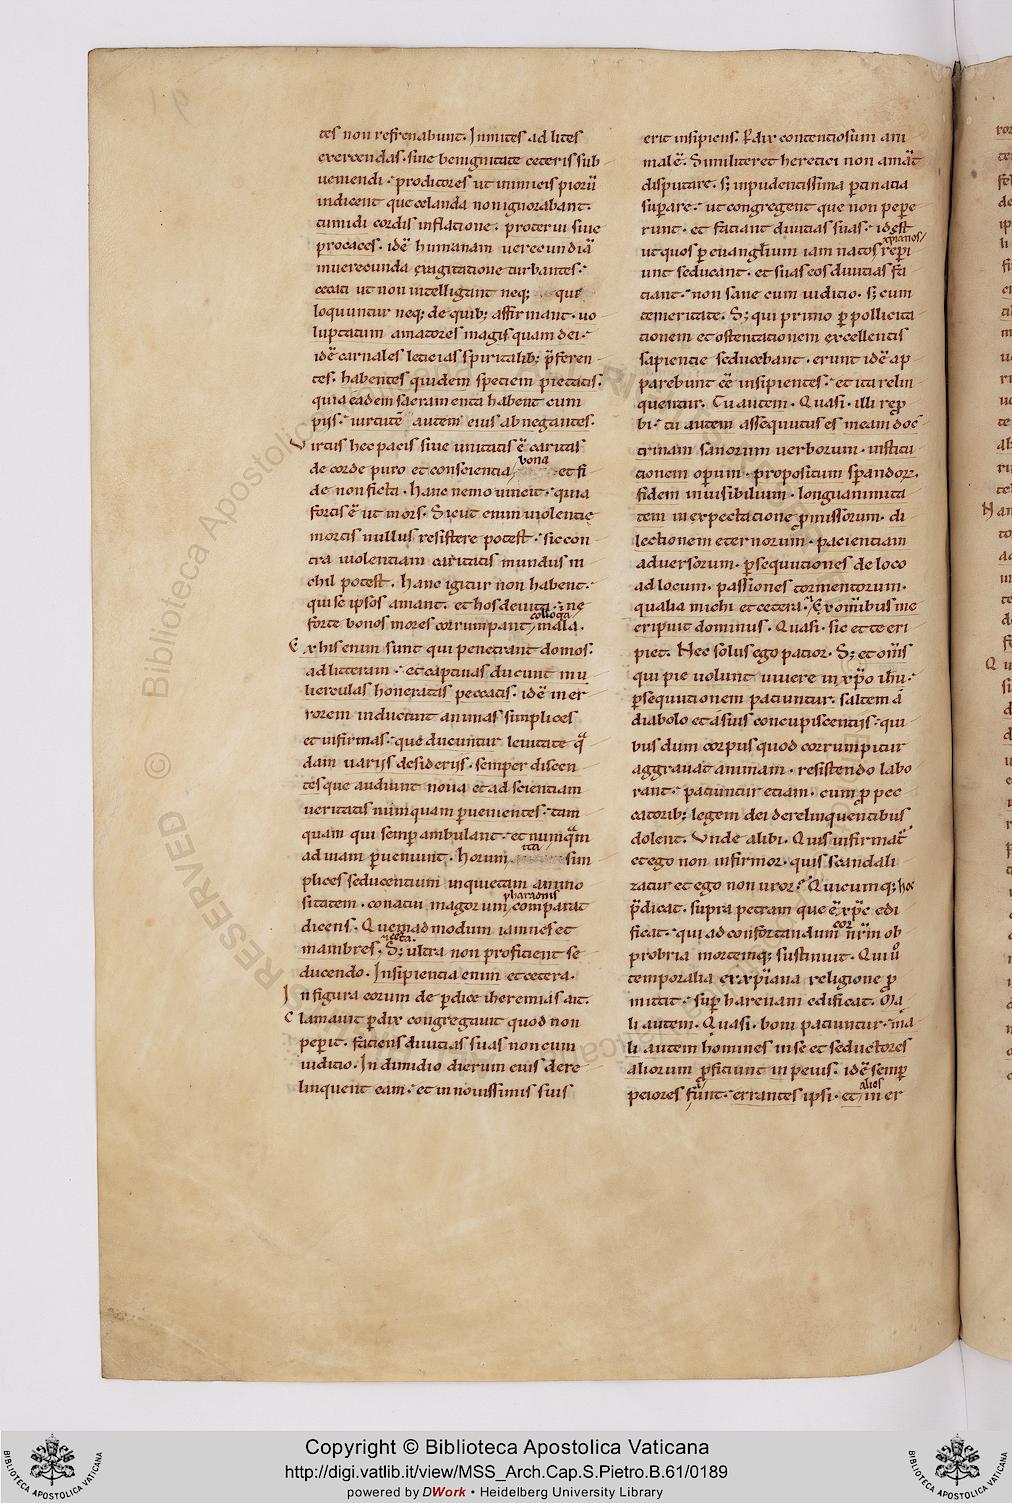 tes non refrenabunt. Inmites ad lites
exercendas. siue benignitate ceteris sub
ueniendi. proditores ut inimicis pioru̅
indicent que celanda non ignorabant.
tumidi cordis inflatione. proterui siue
procaces. ide̅ humanam uerecundia̅
inuerecunda exagitatione turbantes.
cecati ut non intelligant neq; que
loquuntur neq; de quib; affirmant. uo
luptatum amatores magis quam dei.
ide̅ carnales leticias spiritalib; p̅feren
tes. habentes quidem speciem pietatis.
quia eadem sacramenta habent cum
pijs. uirtute̅ autem eius abnegantes.
Virtus hec pacis siue unitatis e̅ caritas
de corde puro et conscientia bona et fi
de non ficta. hanc nemo uincit. quia
fortis e̅ ut mors. Sicut enim uiolentie
mortis nullus resistere potest. sic con
tra uiolentiam caritatis mundus ni
chil potest. hanc igitur non habent.
qui se ipsos amant. et hos deuita. ne
forte bonos mores corrumpant colloq̅a mala.
Ex his enim sunt qui penetrant domos.
ad litteram. et captiuas ducunt mu
lierculas honeratis peccatis. ide̅ in er
rorem inducunt animas simplices
et infirmas. que ducuntur leuitate q̅
dam uarijs desiderijs. semper discen
tes que audiunt noua et ad scientiam
ueritatis numquam peruenientes. tam
quam qui semp̅ ambulant. et numqua̅
ad uiam p̅ueniunt. horum sim
plices seducentium inquietam animo
sitatem. conatui magorum pharaonis comparat
dicens. Quemadmodum iamnes et
mambres. S; ultra non proficient se
ducendo. Insipientia enim et cetera.
In figura eorum de p̅dice iheremias ait.
Clamauit p̅dix congregauit quod non
pep̅it. faciens diuitias suas non cum
iuditio. In dimidio dierum eius dere
linquent eam. et in nouissimis suis
erit insipiens. P̅dix contentiosum ani
mal e̅. Similiter et heretici non ama̅t
disputare. s; inpudentissima p̅tinatia
sup̅are. ut congregent que non pepe
runt. et faciant diuitias suas. id est
ut quos p̅ euang̅lium iam natos xp̅ianos rep̅i
unt seducant. et suas eos diuitias fa
ciant. non sane cum iuditio. s; cum
temeritate. S; qui primo p̅ pollicita
tionem et ostentationem excellentis
sapientie seducebant. erunt ide̅ ap
parebunt e̅e insipientes. et ita relin
quentur. Tu autem. Quasi. illi rep̅
bi. tu autem assequutus es meam doc
trinam sanorum uerborum. institu
tionem op̅um. propositum sp̅andor̅.
fidem inuisibilium. longuanimita
tem in expectatione p̅missorum. di
lectionem eternorum. pacientiam
aduersorum. p̅sequutiones de loco
ad locum. passiones tormentorum.
qualia michi et cetera. Ex om̅ibus me
eripuit dominus. Quasi. sic et te eri
piet. Nec solus ego patior. S; et om̅s
qui pie uolunt uiuere in xp̅o ihu̅.
p̅sequutionem patiuntur. saltem a̅
diabolo et a suis concupiscentijs. qui
bus dum corpus quod corrumpitur
aggrauat animam. resistendo labo
rant. patiuntur etiam. cum p̅ pec
catorib; legem dei derelinquentibus
dolent. Vnde alibi. Quis infirmat̅
et ego non infirmor. quis scandali
zatur et ego non uror? Quicumq; hoc
p̅dicat. supra petram que e̅ xp̅c edi
ficat. qui ad confortandum cor nr̅m ob
probria mortemq; sustinuit. Qui u̅
temporalia ex xp̅iana religione p̅
mittit. sup̅ harenam edificat. Ma
li autem. Quasi. boni patiuntur. ma
li autem homines in se et seductores
aliorum p̅ficiunt in peius. ide̅ semp̅
peiores fiunt. errantes ipsi. et alios in er
Copyright © Biblioteca Apostolica Vaticana
http://digi.vatlib.it/view/MSS_Arch.Cap.S.Pietro.B.61/0189
powered by DWork • Heidelberg University Library
BIBLIOTECA APOSTOLICA VATICANA
BIBLIOTECA APOSTOLICA VATICANA